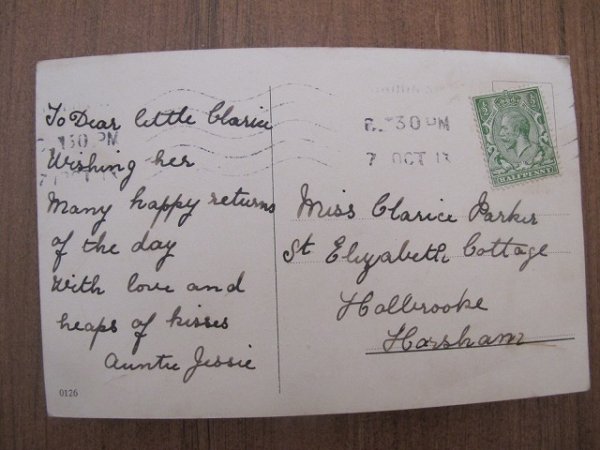 To Dear little Clarice
Wishing her
Many happy returns
of the day
With love and
heaps of kisses
Auntie Jessie
0126
30 PM
7 OCT 13
HALFPENNY
Miss Clarice Parker
St Elizabeth Cottage
Holbrooke
Horsham